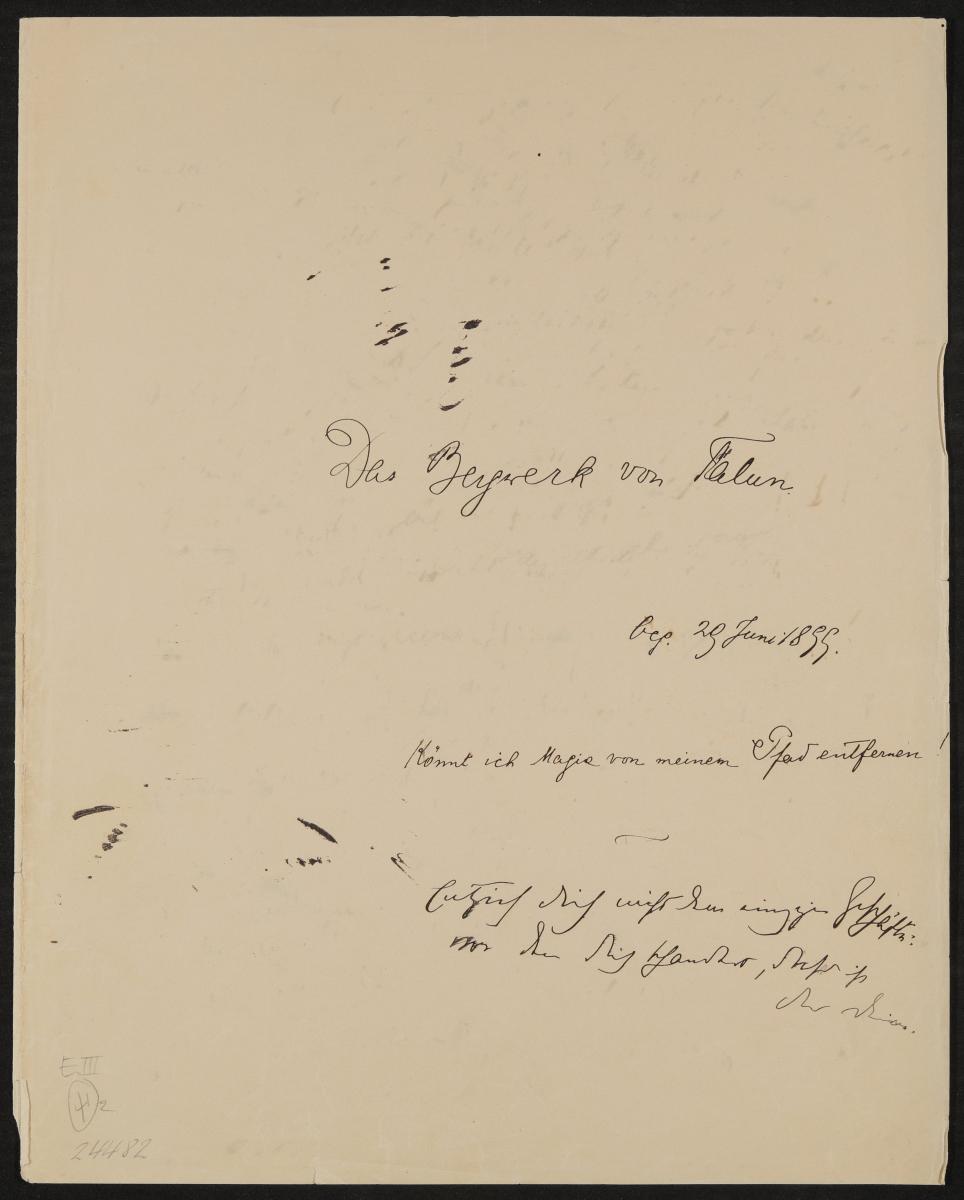 Das Bergwerk von Falun.
beg. 29 Juni 1899.
Könnt ich Magie von meinem Pfad entfernen!
Entzieh dich nicht dem einzigen Geschäfte:
vor dem dich schaudert, dieses ist
das deine.
E III
H 2
24482